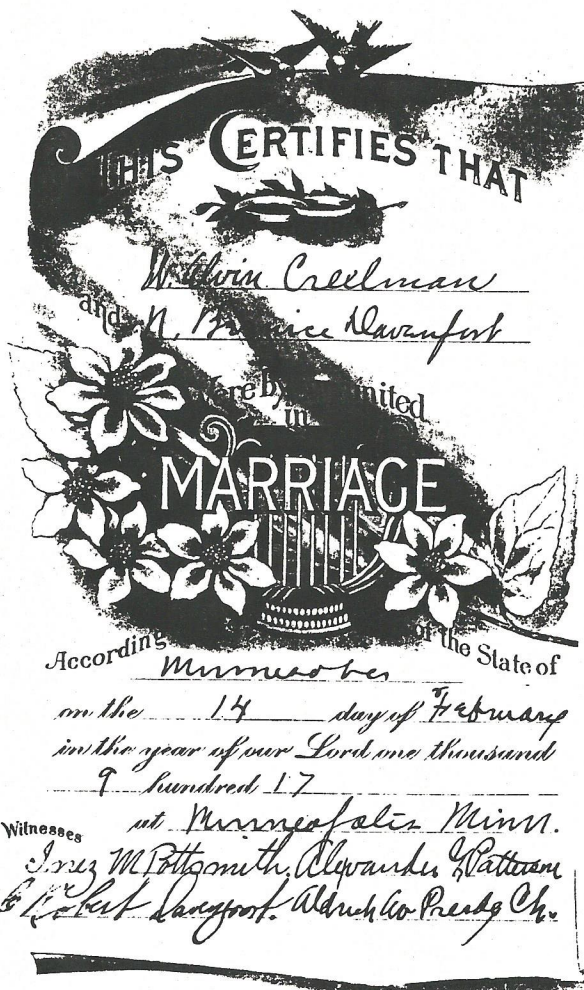 THIS CERTIFIES THAT
W. Alvin Creelman
and N. Davenport
united
in
MARRIAGE
According of the State of
Minnesota
on the 14 day of February
in the year of our Lord one thousand
9 hundred 17
at Minneapolis Minn.
Witnesses
Inez M Pottsmith. Alexander G Patterson
Robert Davenport. Aldrich Av Presby Ch.